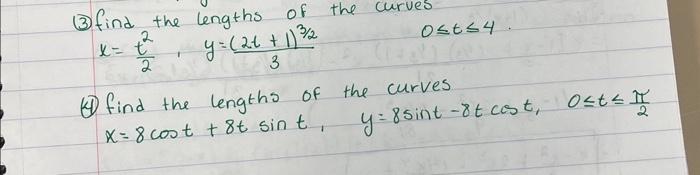 ③ find the lengths of the curves
x = t²/2 , y = (2t + 1)^3/2 / 3 0 ≤ t ≤ 4 .
④ find the lengths of the curves
x = 8 cos t + 8t sin t , y = 8 sin t - 8t cos t, 0 ≤ t ≤ π/2